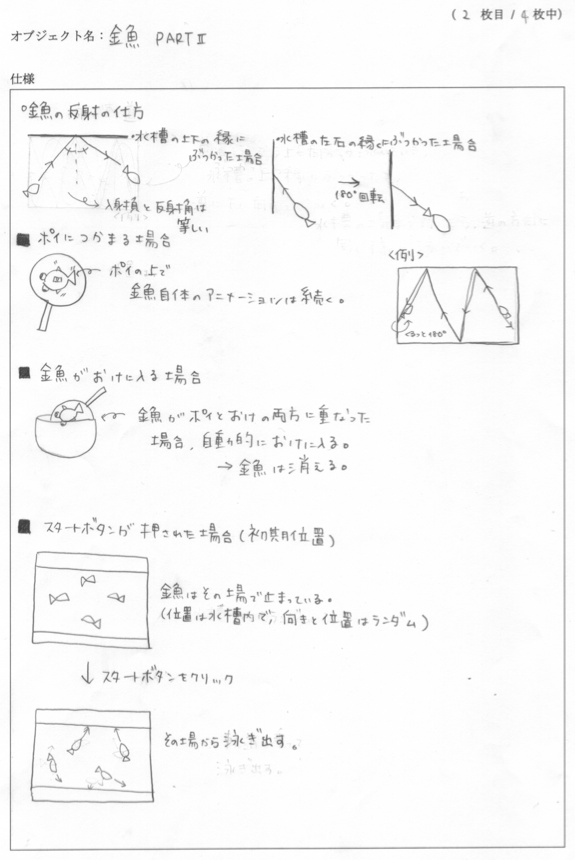 (2 枚目/4枚中)
オブジェクト名:金魚 PARTⅡ
仕様
○金魚の反射の仕方
・水槽の上下の縁に
ぶつかった場合
入射角と反射角は
等しい
・水槽の左右の縁にぶつかった場合
180°回転
■ ポイにつかまる場合
ポイの上で
金魚自体のアニメーションは続く。
<例>
くるっと180°
■ 金魚がおけに入る場合
金魚がポイとおけの両方に重なった
場合、自動的におけに入る。
→金魚は消える。
■ スタートボタンが押された場合(初期位置)
金魚はその場で止まっている。
(位置は水槽内で、向きと位置はランダム)
↓ スタートボタンをクリック
その場から泳ぎ出す。